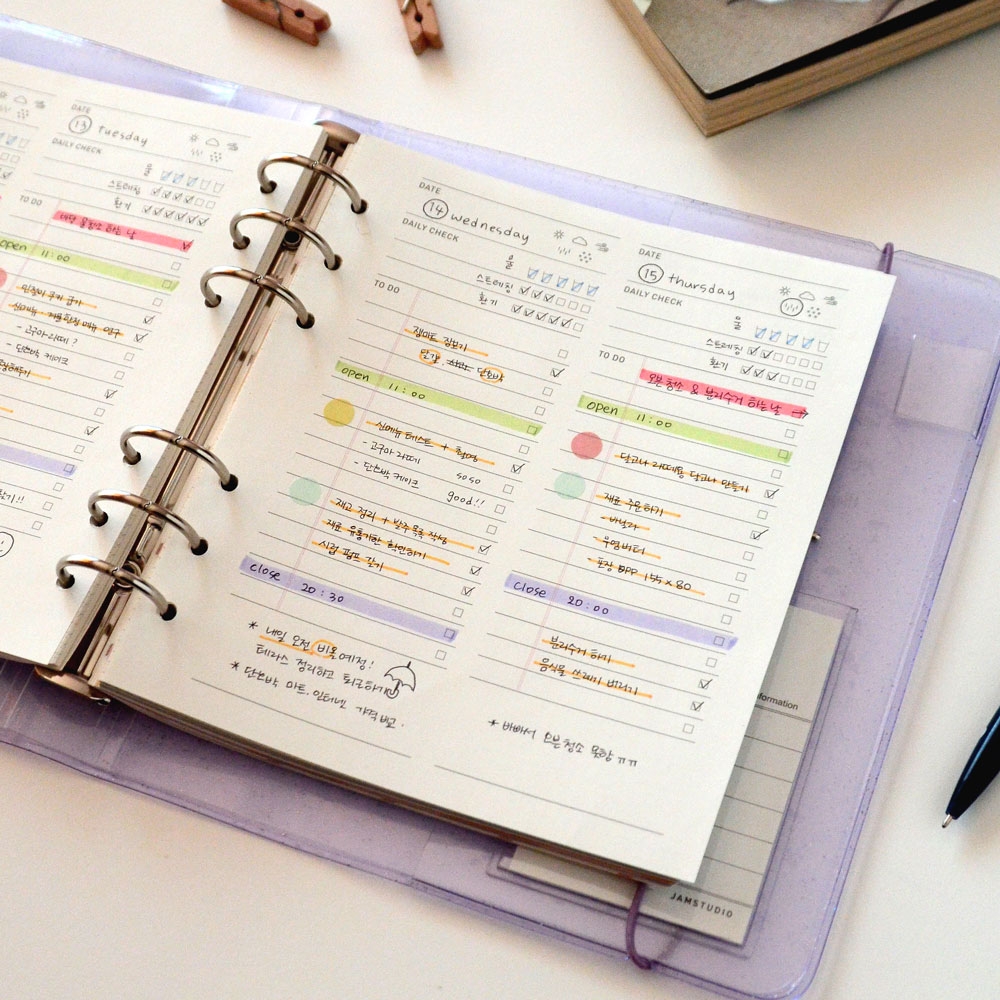 DATE
13 tuesday
DAILY CHECK
물
스트레칭
환기
TO DO
매장 물청소 하는 날
open 11:00
신메뉴
- 고구마 라떼?
- 단호박 케이크
DATE
14 wednesday
DAILY CHECK
물
스트레칭
환기
TO DO
잼마트 장보기
달걀, 단호박
open 11:00
신메뉴 테스트 + 촬영
- 고구마 라떼 soso
- 단호박 케이크 good!!
재고 정리 + 발주 목록 작성
재료 유통기한 확인하기
시럽 펌프 갈기
close 20:30
* 내일 오전 비올예정!
테라스 정리하고 퇴근하기
* 단호박 마트, 인터넷 가격 비교.
DATE
15 thursday
DAILY CHECK
물
스트레칭
환기
TO DO
오븐 청소 & 분리수거 하는 날 →
open 11:00
달고나 라떼용 달고나 만들기
재료 주문하기
- 바닐라
- 무염버터
- 포장 OPP 155 x 80
close 20:00
분리수거 하기
음식물 쓰레기 버리기
* 바빠서 오븐청소 못함 ㅠㅠ
information
JAMSTUDIO